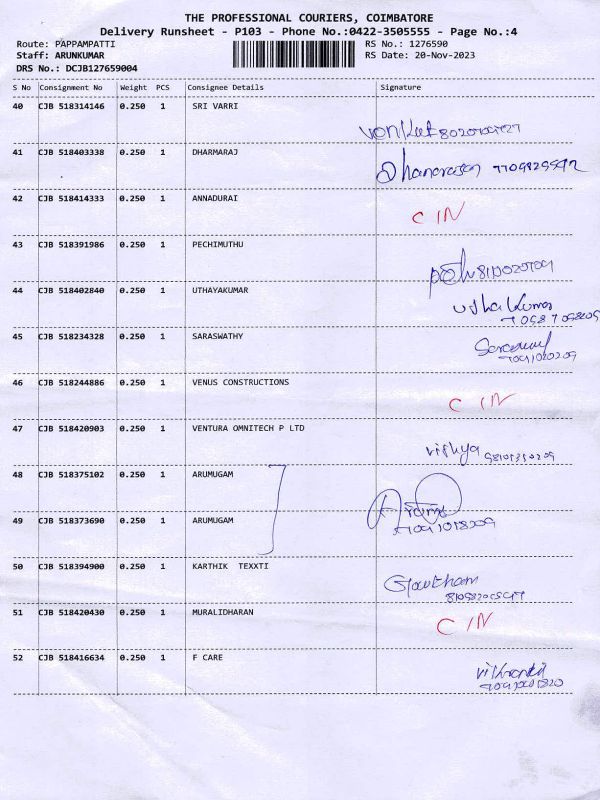 THE PROFESSIONAL COURIERS, COIMBATORE
Delivery Runsheet - P103 - Phone No.:0422-3505555 - Page No.:4
Route: PAPPAMPATTI RS No.: 1276590
Staff: ARUNKUMAR RS Date: 20-Nov-2023
DRS No.: DCJB127659004
S No Consignment No Weight PCS Consignee Details Signature
40 CJB 518314146 0.250 1 SRI VARRI
41 CJB 518403338 0.250 1 DHARMARAJ
42 CJB 518414333 0.250 1 ANNADURAI
C IN
43 CJB 518391986 0.250 1 PECHIMUTHU
44 CJB 518402840 0.250 1 UTHAYAKUMAR
45 CJB 518234328 0.250 1 SARASWATHY
46 CJB 518244886 0.250 1 VENUS CONSTRUCTIONS
C IN
47 CJB 518420903 0.250 1 VENTURA OMNITECH P LTD
48 CJB 518375102 0.250 1 ARUMUGAM
49 CJB 518373690 0.250 1 ARUMUGAM
50 CJB 518394900 0.250 1 KARTHIK TEXXTI
Gowtham
51 CJB 518420430 0.250 1 MURALIDHARAN
C IN
52 CJB 518416634 0.250 1 F CARE